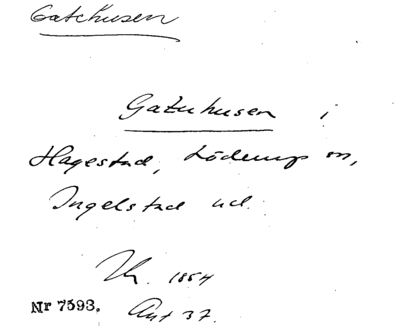 Gatehusen
Gatuhusen i
Hagestad, Löderup sn,
Ingelstad hd.
1854
Nr 7593. Ant 37.